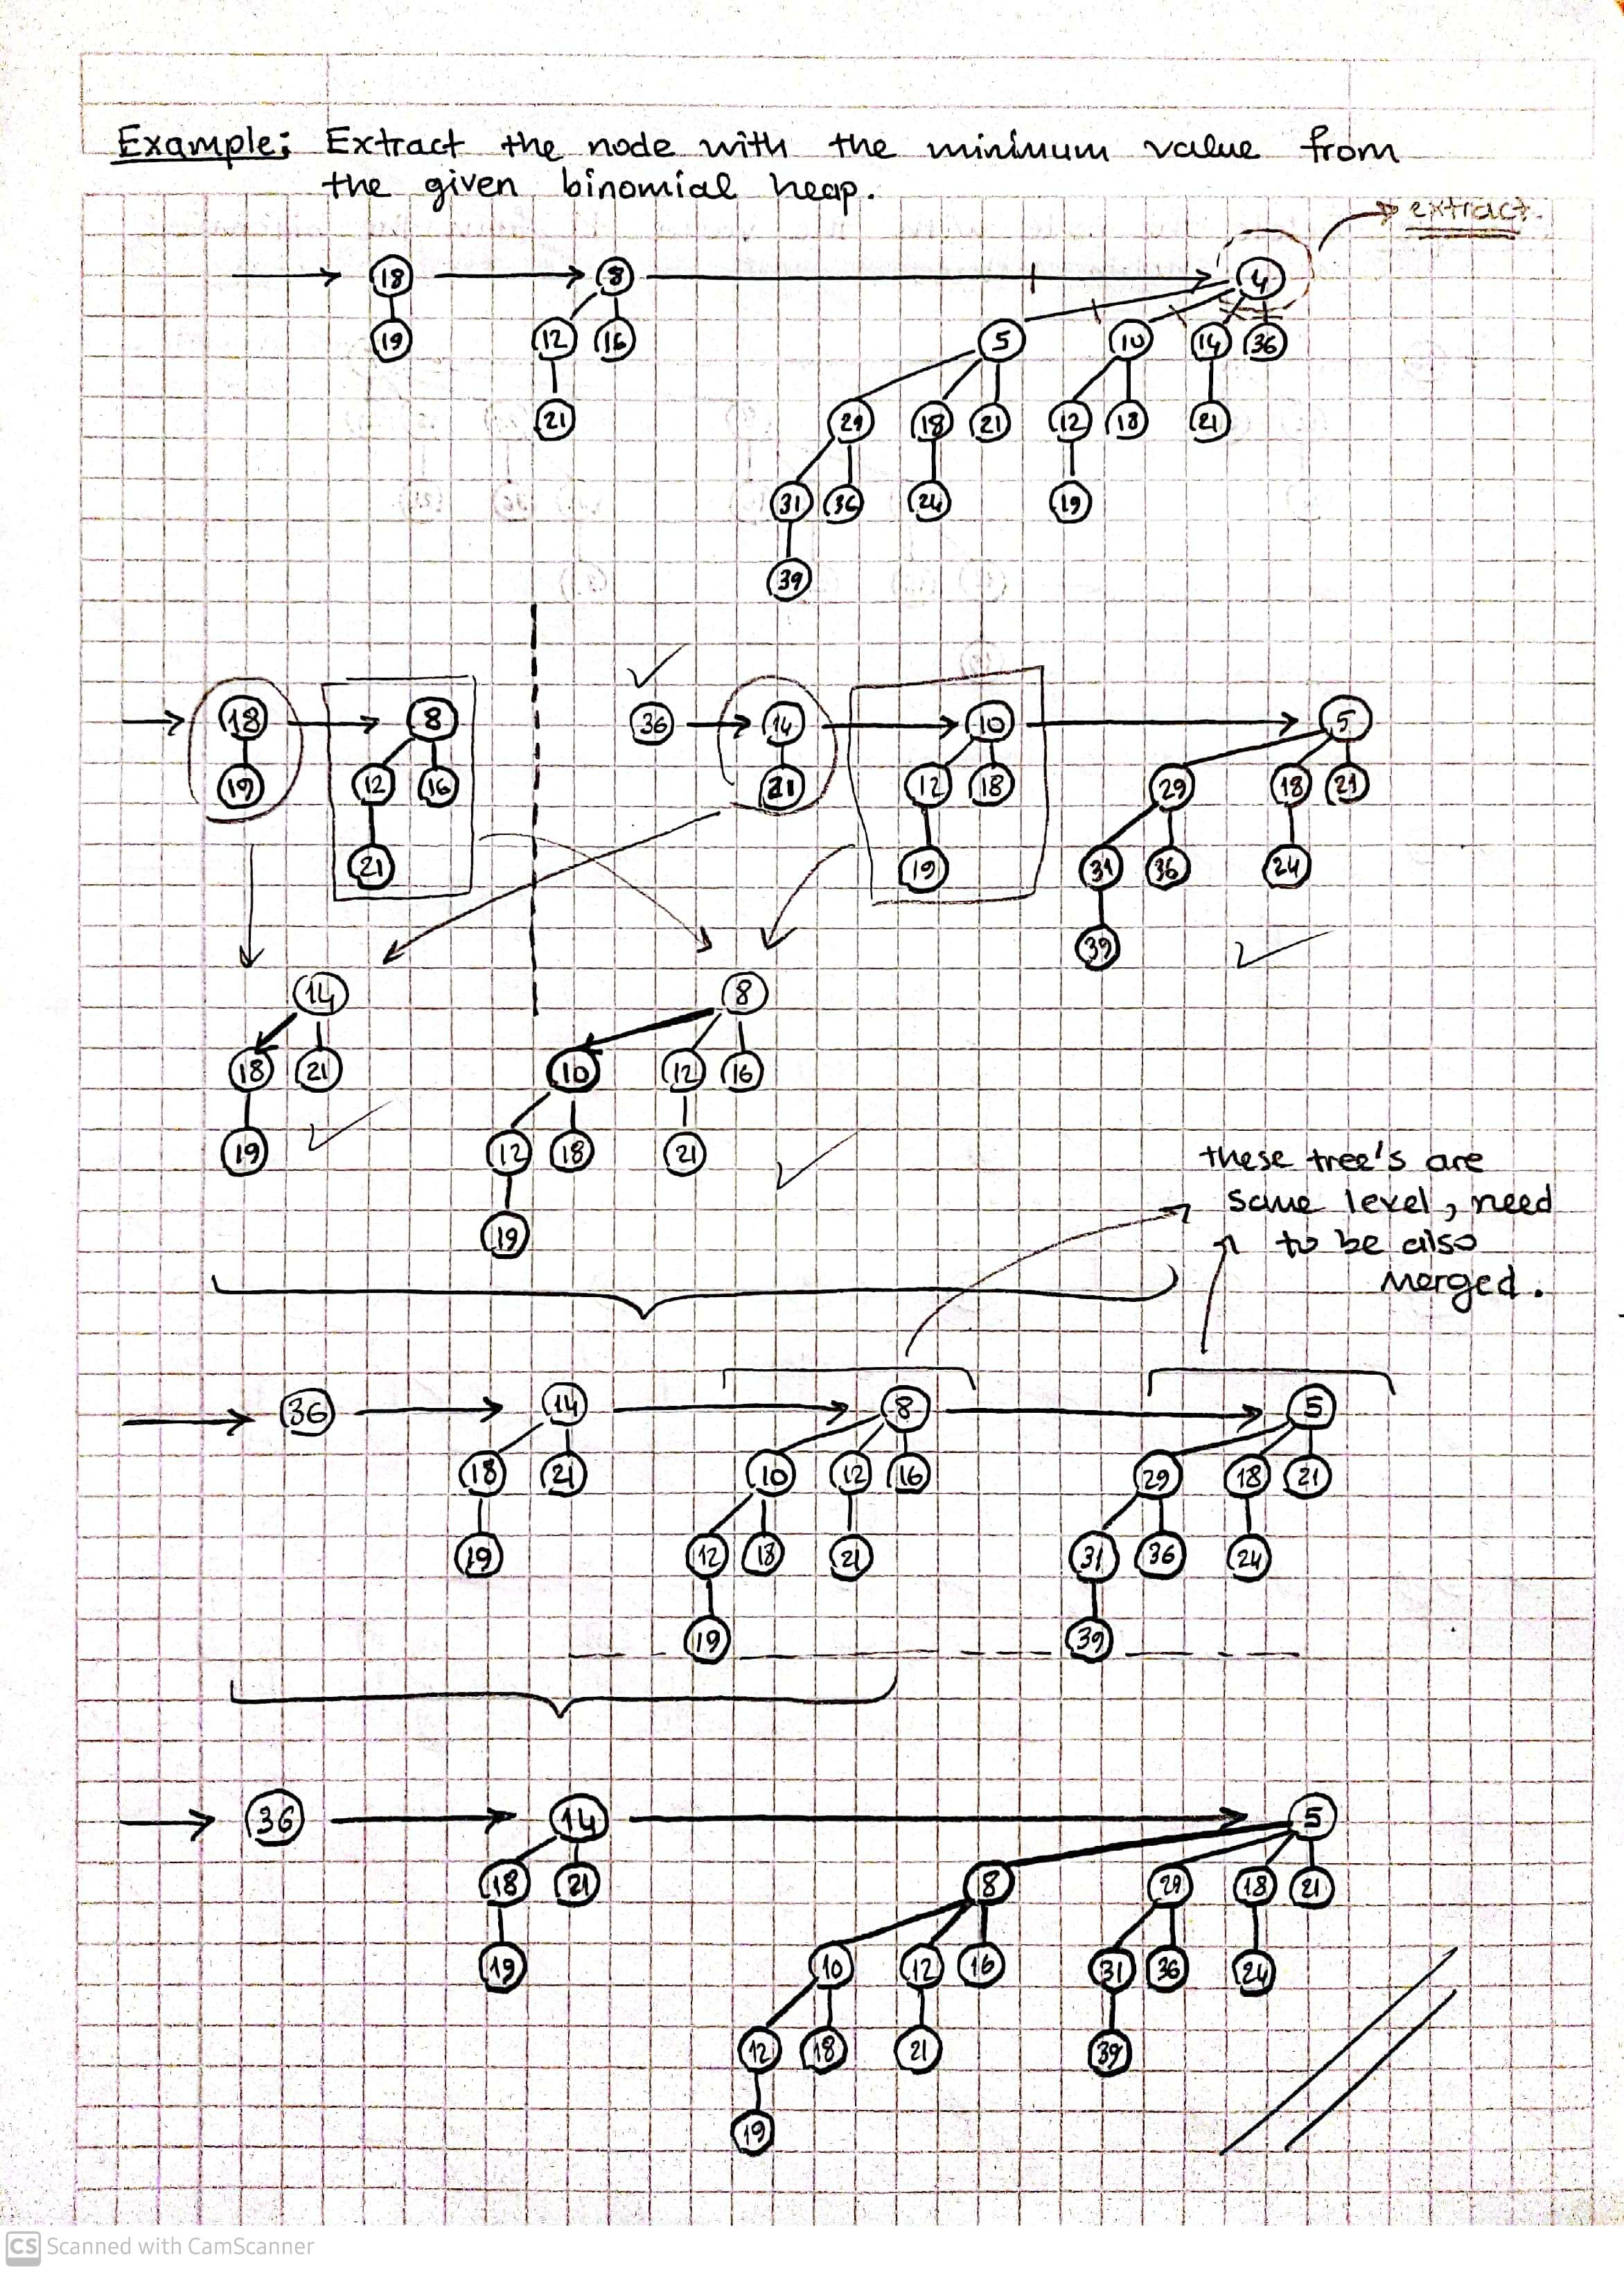 Example: Extract the node with the minimum value from
the given binomial heap.
extract.
18 8 4
19 12 16 5 10 14 36
21 29 18 21 12 18 21
31 36 24 19
39
18 8 36 14 10 5
19 12 16 21 12 18 29 18 21
21 19 31 36 24
39
14 8
18 21 10 12 16
19 12 18 21
19
these tree's are
same level, need
to be also
merged.
36 14 8 5
18 21 10 12 16 29 18 21
19 12 18 21 31 36 24
19 39
36 14 5
18 21 8 29 18 21
19 10 12 16 31 36 24
12 18 21 39
19
CS Scanned with CamScanner